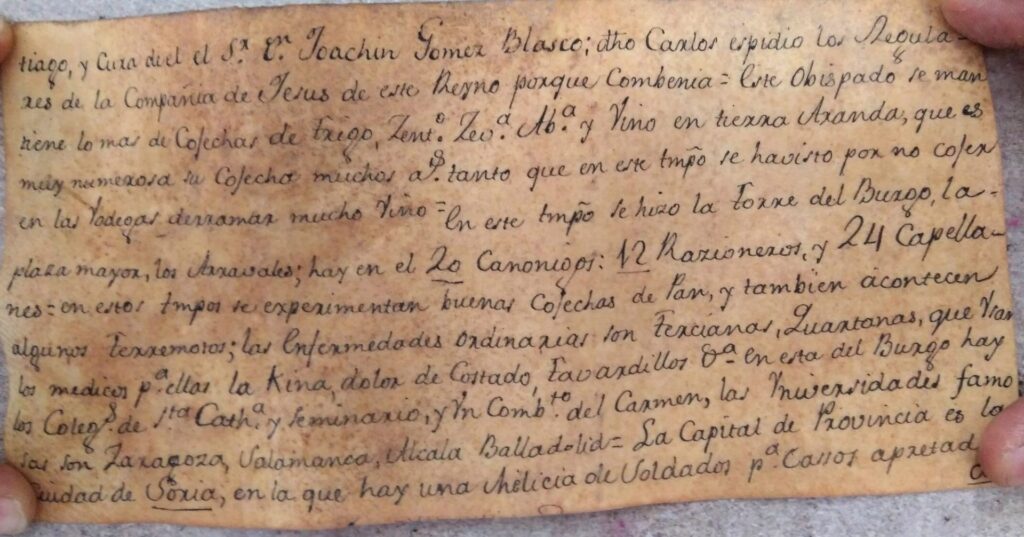 tiago, y Cura de el el Sr. Dn. Joachin Gomez Blasco; dho Carlos espidio los Regula-
res de la Compañia de Jesus de este Reyno porque Combenia = Este Obispado se man
tiene lo mas de Cosechas de trigo, Zento. Zeva. Aba. y Vino en tierra Aranda, que es
muy numerosa su Cosecha muchos as. tanto que en este tmpo se havisto por no coser
en las Vodegas derramar mucho Vino = En este tmpo se hizo la torre del Burgo, la-
plaza mayor, los Arravales; hay en el 20 Canonigos: 12 Razioneros, y 24 Capella-
nes = en estos tmpos se experimentan buenas Cosechas de Pan, y tambien acontecen
algunos terremotos; las Enfermedades ordinarias son tercianas, Quartanas, que Vsan
los medicos pa. ellas la Kina, dolor de Costado, tavardillos &a. En esta del Burgo hay
los Colegs. de Sta Catha. y Seminario, y Vn Combto. del Carmen, las Vniversidades famo
sas son Zaragoza, Salamanca, Alcala Balladolid = La Capital de Provincia es la
Ciudad de Soria, en la que hay una Melicia de Soldados pa. Casos apretad